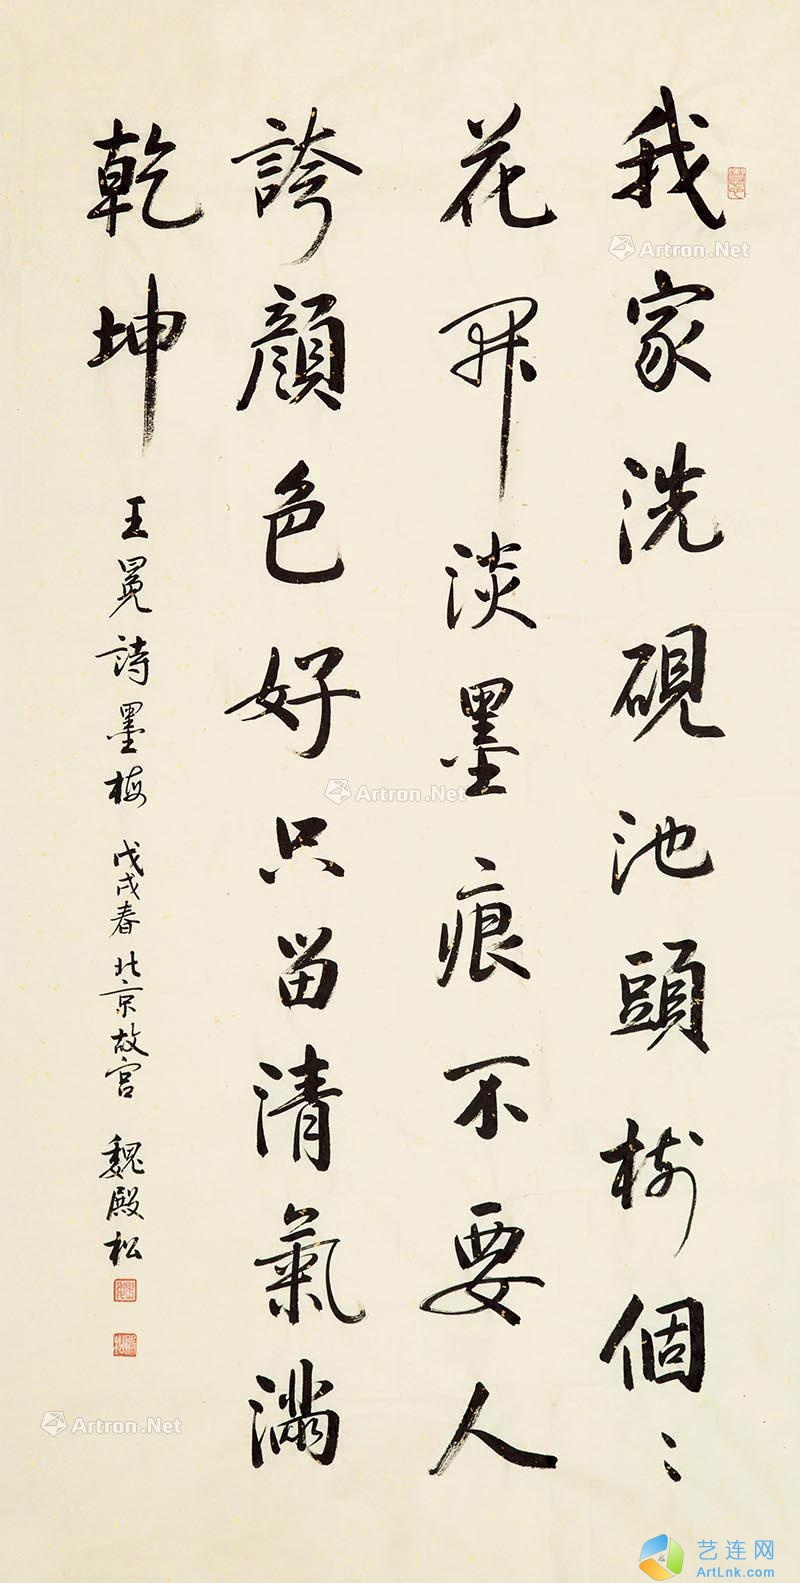 我家洗硯池頭樹個〻
花開淡墨痕不要人
誇顏色好只留清氣滿
乾坤
王冕詩墨梅 戊戌春 北京故宮 魏殿松
Artron.Net
Artron.Net
Artron.Net
艺连网
ArtLnk.com